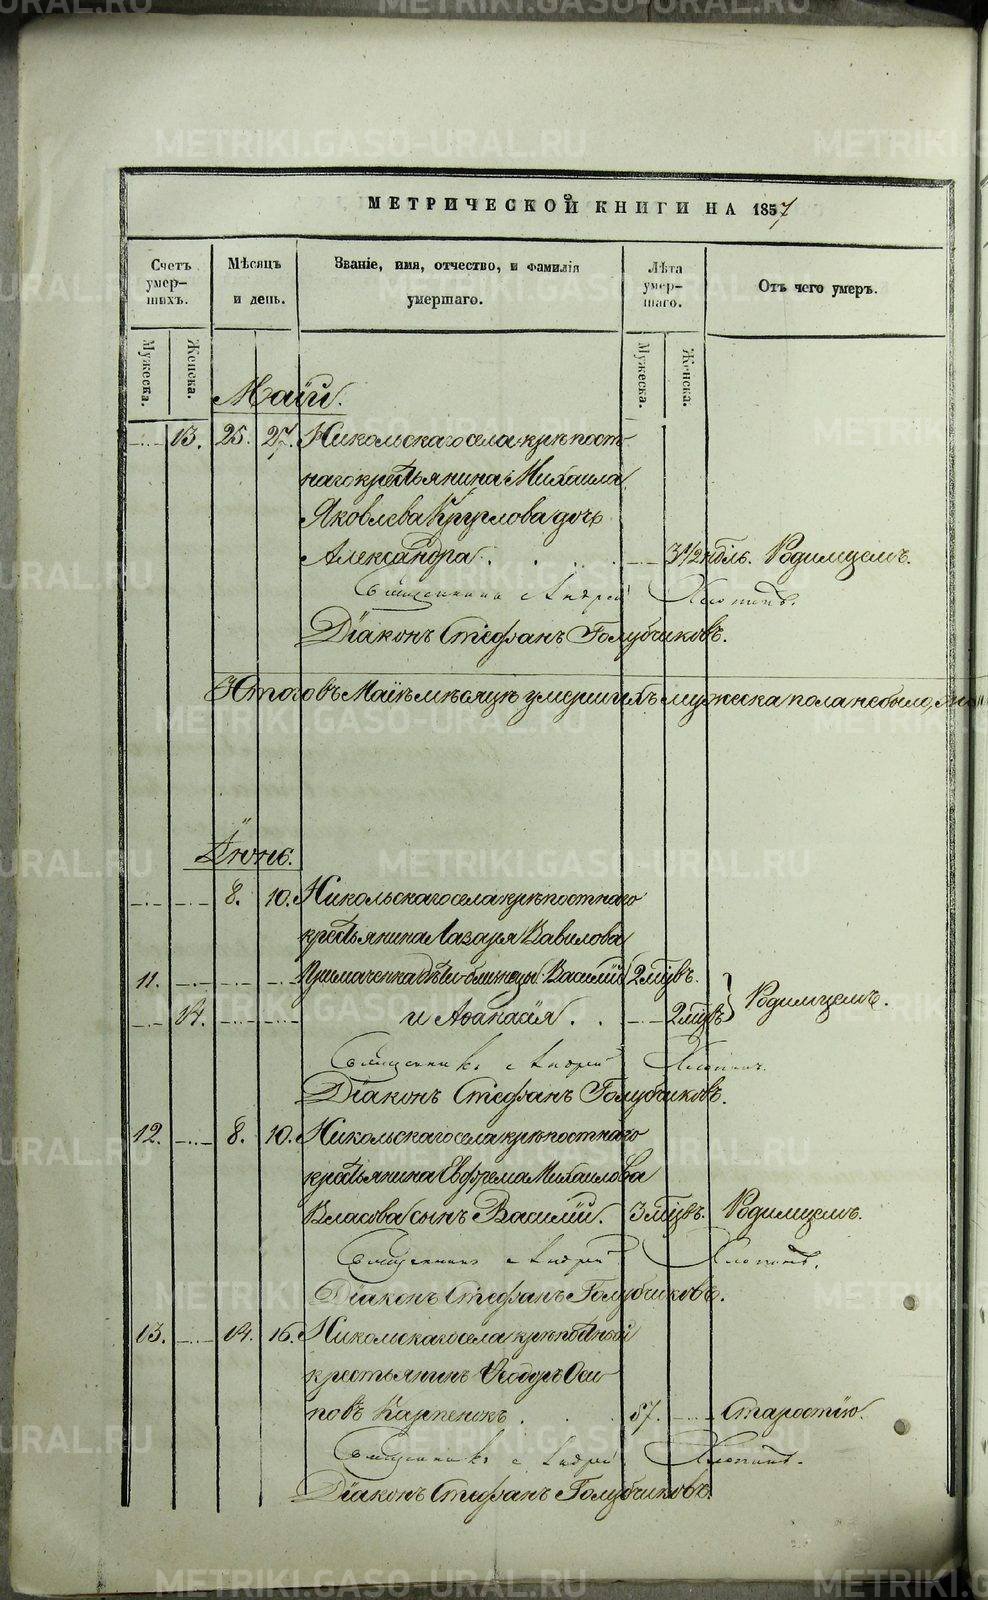 METRIKI.GASO-URAL.RU
МЕТРИЧЕСКОЙ КНИГИ НА 1857
Счетъ умер-шихъ.
Мѣсяцъ и день.
Званіе, имя, отчество, и фамилія умершаго.
Лѣта умер-шаго.
Отъ чего умеръ.
Мужеска. Женска. Мужеска. Женска.
Маій.
13. 25. 27. Никольскаго села крѣпост-
наго крестьянина Михаила
Яковлева Круглова дочь
Александра. 3 1/2 нѣдль. Родимцемъ.
Священникъ Андрей
Діаконъ Стефанъ Голубчиковъ.
Итого въ Маіѣ мѣсяцѣ умершихъ мужеска пола не было,
Іюнь.
8. 10. Никольскаго села крѣпостнаго
крестьянина Лазаря Вавилова
11. дѣти близнецы: Василій 2 мцвъ.
14. и Афанасія. 2 мцвъ } Родимцемъ.
Священникъ Андрей
Діаконъ Стефанъ Голубчиковъ.
12. 8. 10. Никольскаго села крѣпостнаго
крестьянина Евфрема Михаилова
Власова сынъ Василій. 3 мцвъ. Родимцемъ.
Священникъ Андрей
Діаконъ Стефанъ Голубчиковъ.
13. 14. 16. Никольскаго села крѣпостный
крестьянинъ Ѳеодоръ Оси
повъ 87. Старостію.
Священникъ Андрей
Діаконъ Стефанъ Голубчиковъ.